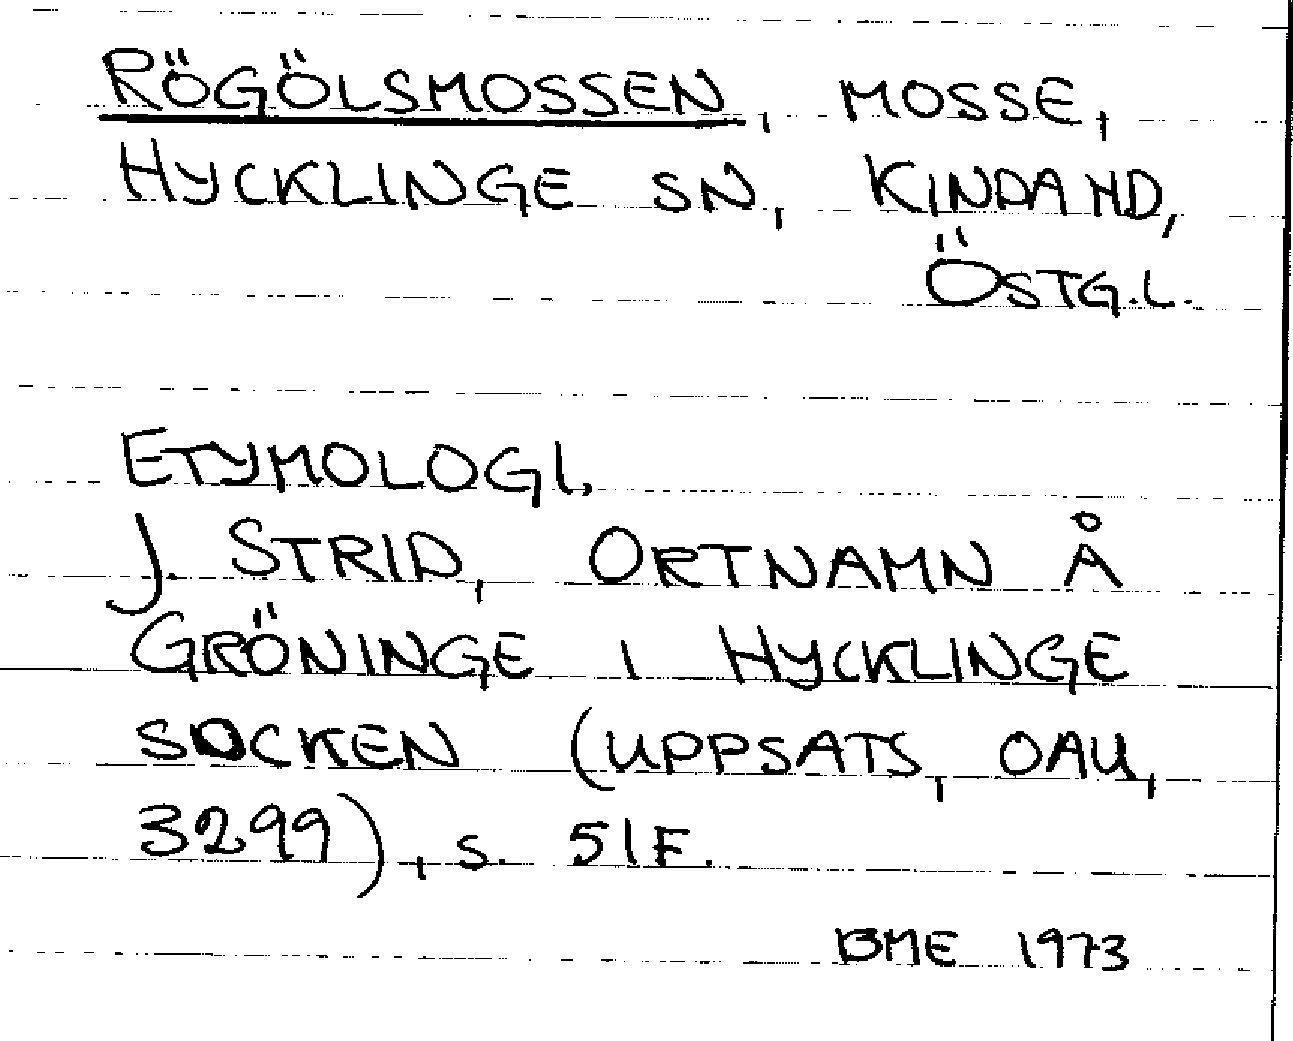 RÖGÖLSMOSSEN, MOSSE,
HYCKLINGE SN, KINDA HD,
ÖSTG.L.
ETYMOLOGI,
J. STRID, ORTNAMN Å
GRÖNINGE I HYCKLINGE
SOCKEN (UPPSATS, OAU,
3299), S. 51F.
BME 1973